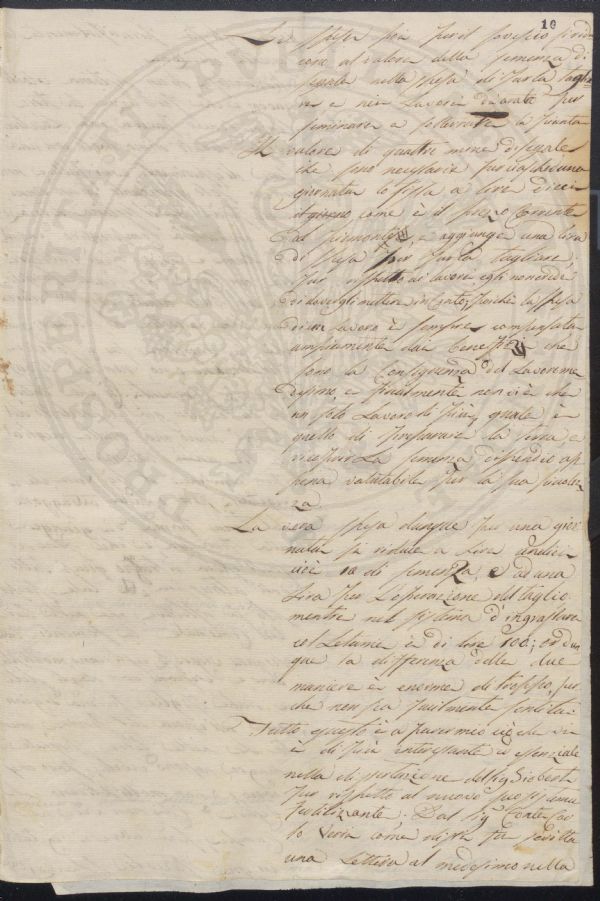 10
La spesa poi per il sovescio si ridu
ce al valore della semenza di
segale nella spesa di farla taglia
re e nei Lavori d'aratro per
seminare e sotterrare la pianta
Il valore di quattro mine di segale
che sono necessarie per ciascheduna
giornata lo fissa a lire dieci
come è il prezzo Corrente
del Piemonte, e aggiunge una lira
di spesa per farla tagliare;
Per rispetto ai lavori egli non crede
di dovergli mettere in Conto, perchè la spesa
di un Lavoro è sempre compensata
ampiamente dai benefizj che
sono la Conseguenza del Lavoro me
desimo, e finalmente non vi è che
un solo Lavoro di più, quale è
quello di preparare la terra e
ricoprir La semenza dispendio ap
pena valutabile per la sua piccolez
za
La vera spesa dunque per una gior
nata si riduce a Lire undici
cioè 10 di semenza, e ad una
Lira per l'operazione del taglio
mentre nel sistema d'ingrassare
col Letame è di lire 100; or dun
que la differenza delle due
maniere è enorme di troppo, per
che non sia facilmente sentita:
Tutto questo è a parer mio ciò che vi
è di più interessante ed essenziale
nella dissertazione del Sig Gioberti
per rispetto al nuovo suo sistema
fertilizzante. Dal Sig Conte Car
lo Verri come dissi fu scritta
una Lettera al medesimo nella